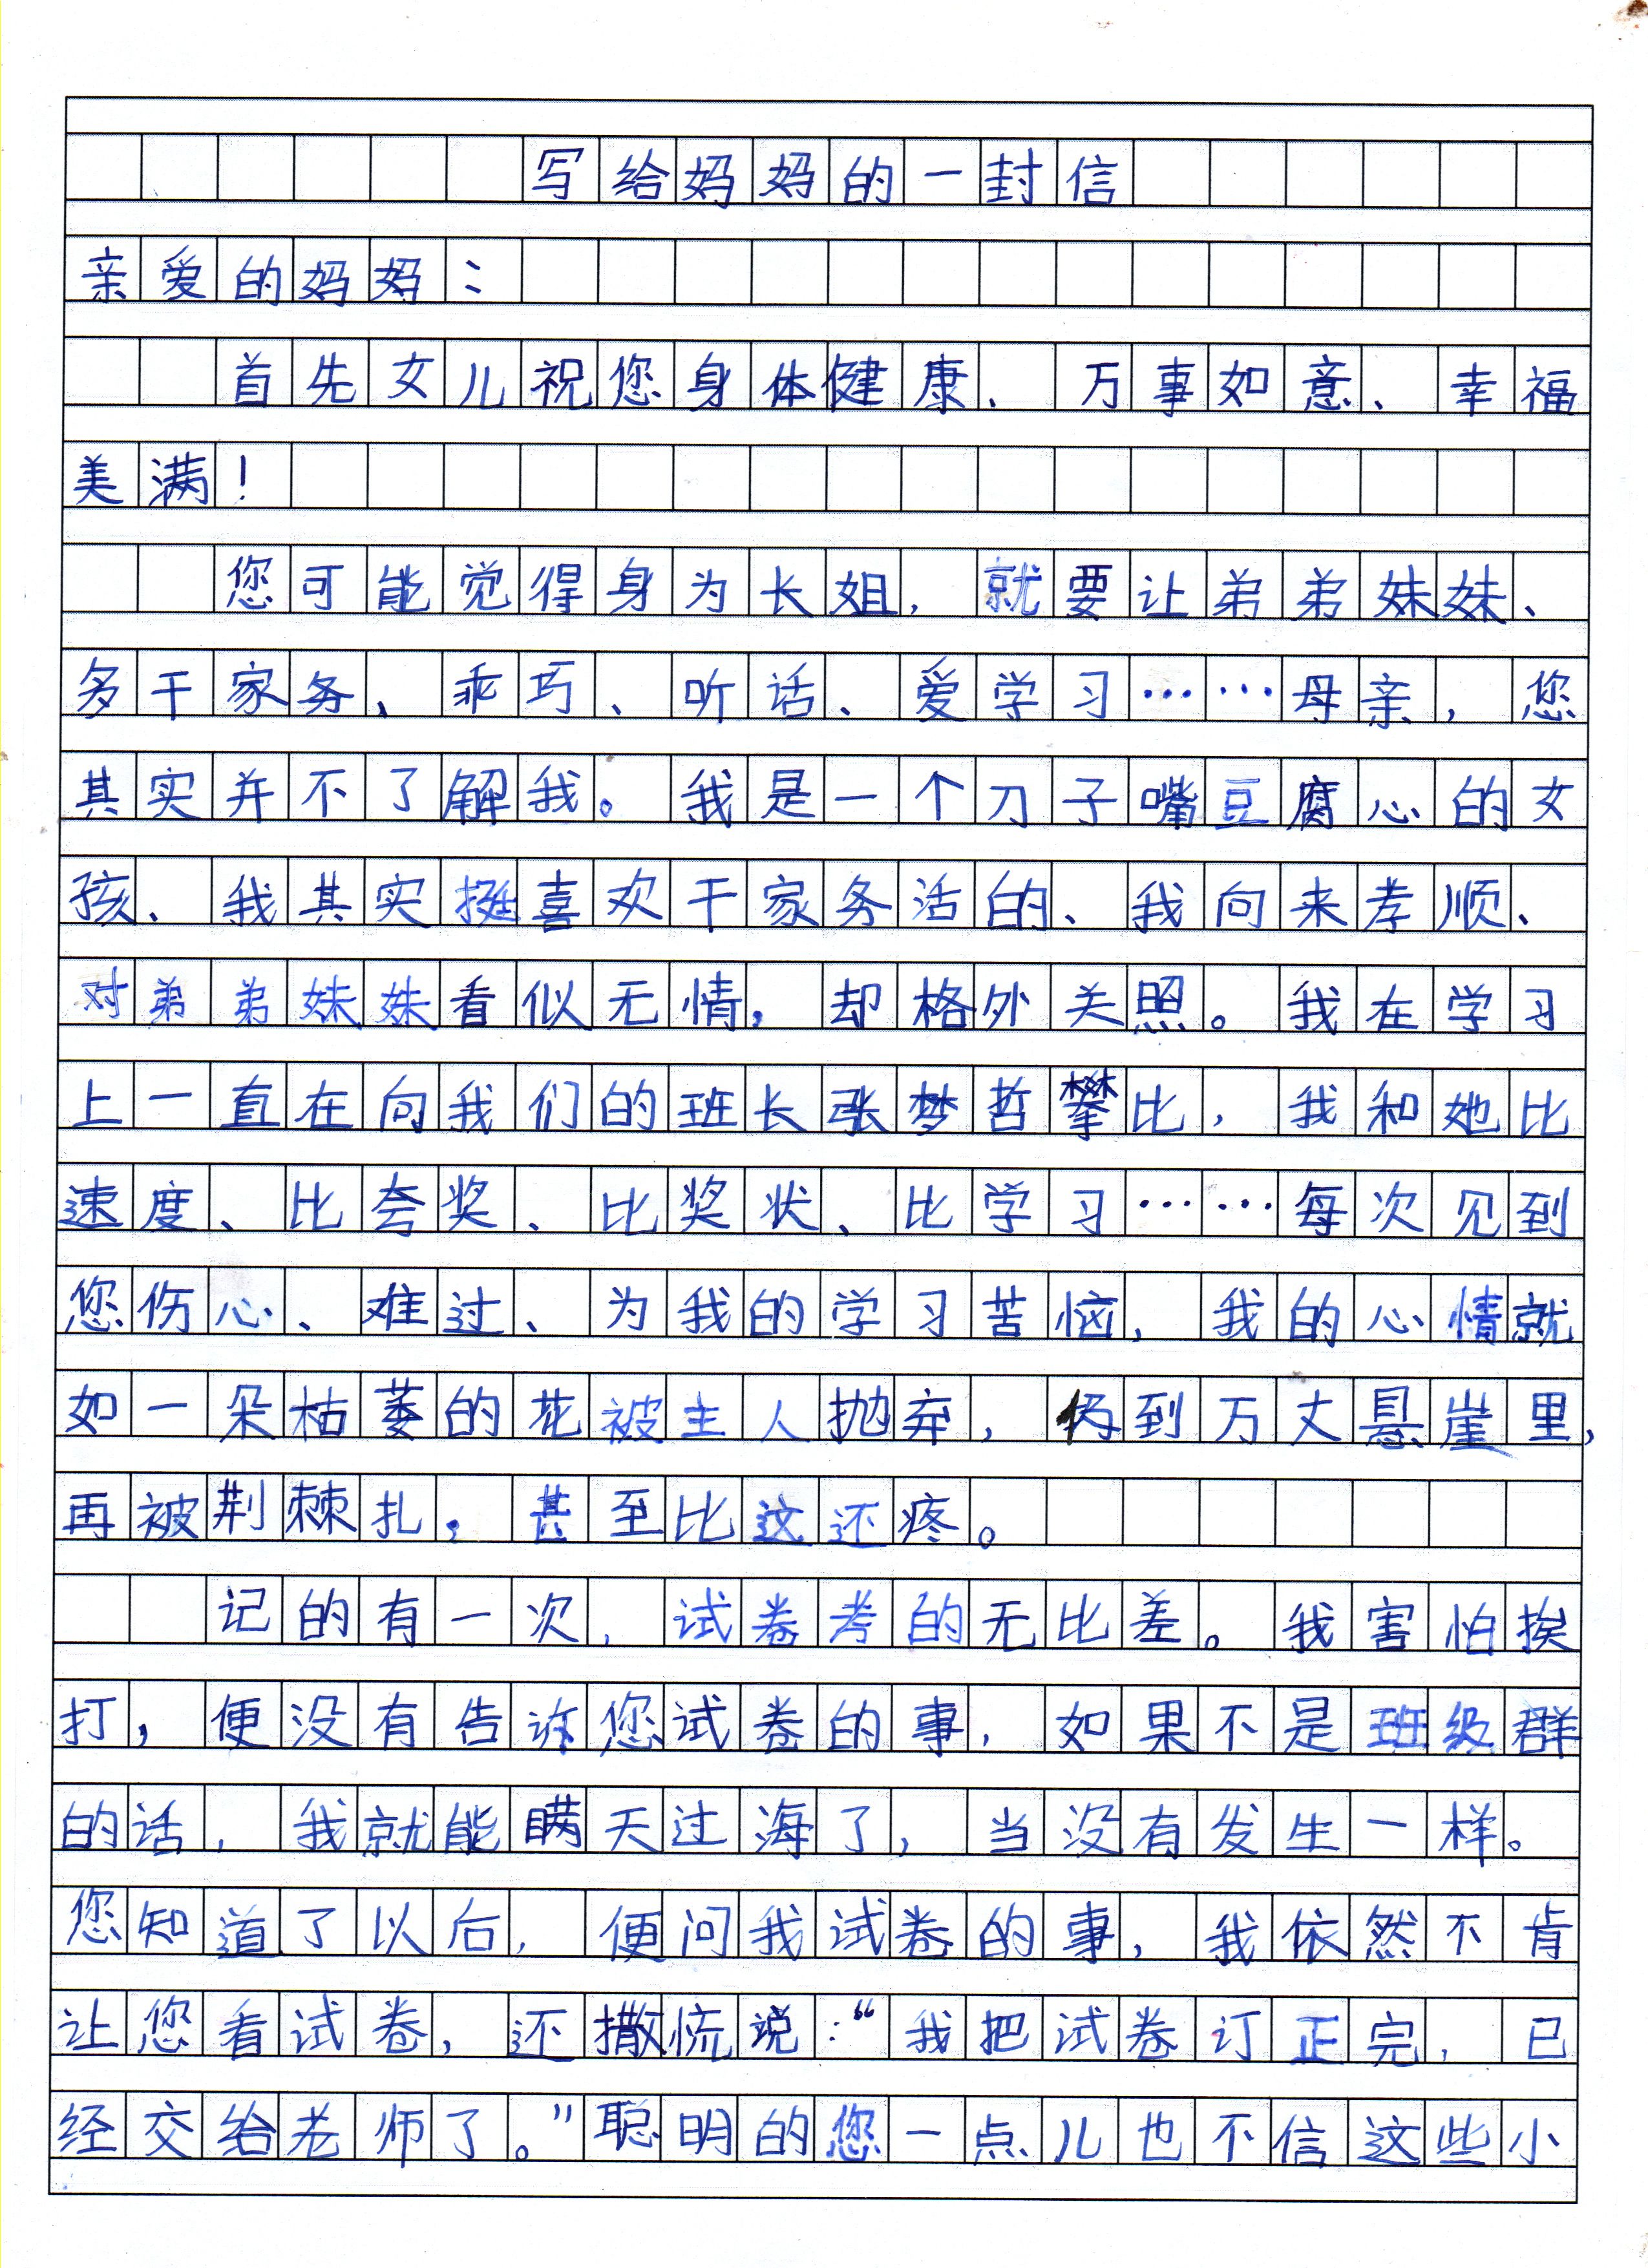 写给妈妈的一封信
亲爱的妈妈：
首先女儿祝您身体健康、万事如意、幸福
美满！
您可能觉得身为长姐，就要让弟弟妹妹、
多干家务、乖巧、听话、爱学习……母亲，您
其实并不了解我。我是一个刀子嘴豆腐心的女
孩、我其实挺喜欢干家务活的、我向来孝顺、
对弟弟妹妹看似无情，却格外关照。我在学习
上一直在向我们的班长张梦哲攀比，我和她比
速度、比夸奖、比奖状、比学习……每次见到
您伤心、难过、为我的学习苦恼，我的心情就
如一朵枯萎的花被主人抛弃，扔到万丈悬崖里，
再被荆棘扎，甚至比这还疼。
记的有一次，试卷考的无比差。我害怕挨
打，便没有告诉您试卷的事，如果不是班级群
的话，我就能瞒天过海了，当没有发生一样。
您知道了以后，便问我试卷的事，我依然不肯
让您看试卷，还撒慌说：“我把试卷订正完，已
经交给老师了。”聪明的您一点儿也不信这些小